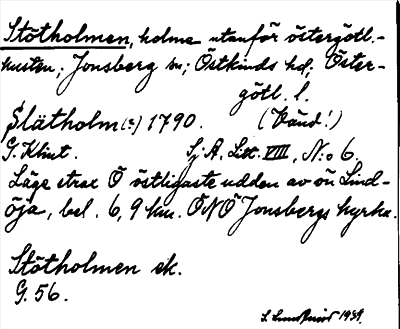 Stötholmen, holme utanför östergötl.-
kusten; Jonsberg sn; Östkinds hd; Öster-
götl. l.
Slätholm (:) 1790. (Vänd!)
G. Klint. Sj A, Litt. VIII, N:o 6.
Läge strax Ö östligaste udden av ön Lind-
öja, bel. 6,9 km. ÖNÖ Jonsbergs kyrka.
Stötholmen ek.
G. 56.
S. 1939.